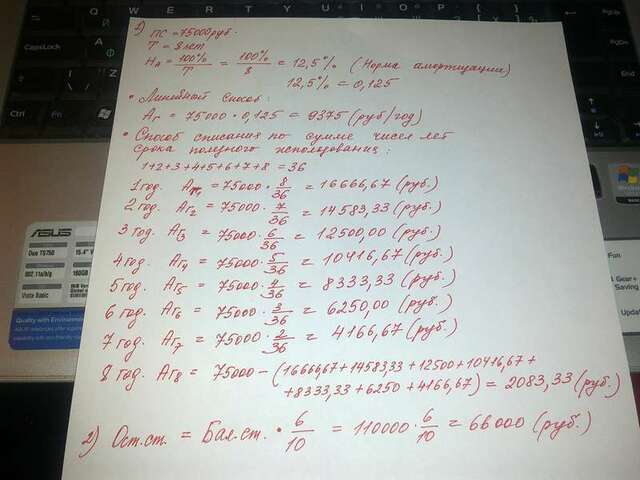 1) ПС = 75000 руб.
T = 8 лет
Hа = 100%/T = 100%/8 = 12,5% (Норма амортизации)
12,5% = 0,125
• Линейный способ:
Аг = 75000 · 0,125 = 9375 (руб/год)
• Способ списания по сумме чисел лет
срока полезного использования:
1+2+3+4+5+6+7+8 = 36
1 год. Аг1 = 75000 · 8/36 = 16666,67 (руб.)
2 год. Аг2 = 75000 · 7/36 = 14583,33 (руб.)
3 год. Аг3 = 75000 · 6/36 = 12500,00 (руб.)
4 год. Аг4 = 75000 · 5/36 = 10416,67 (руб.)
5 год. Аг5 = 75000 · 4/36 = 8333,33 (руб.)
6 год. Аг6 = 75000 · 3/36 = 6250,00 (руб.)
7 год. Аг7 = 75000 · 2/36 = 4166,67 (руб.)
8 год. Аг8 = 75000 - (16666,67+14583,33+12500+10416,67+
+8333,33+6250+4166,67) = 2083,33 (руб.)
2) Ост.ст. = Бал.ст. · 6/10 = 110000 · 6/10 = 66000 (руб.)
CapsLock
Shift
Ctrl
Fn
ASUS
Duo T5750
15.4"
802.11a/b/g
160GB
Vista Basic
Quality with Environmental
Fun
4 Gear+
Saving